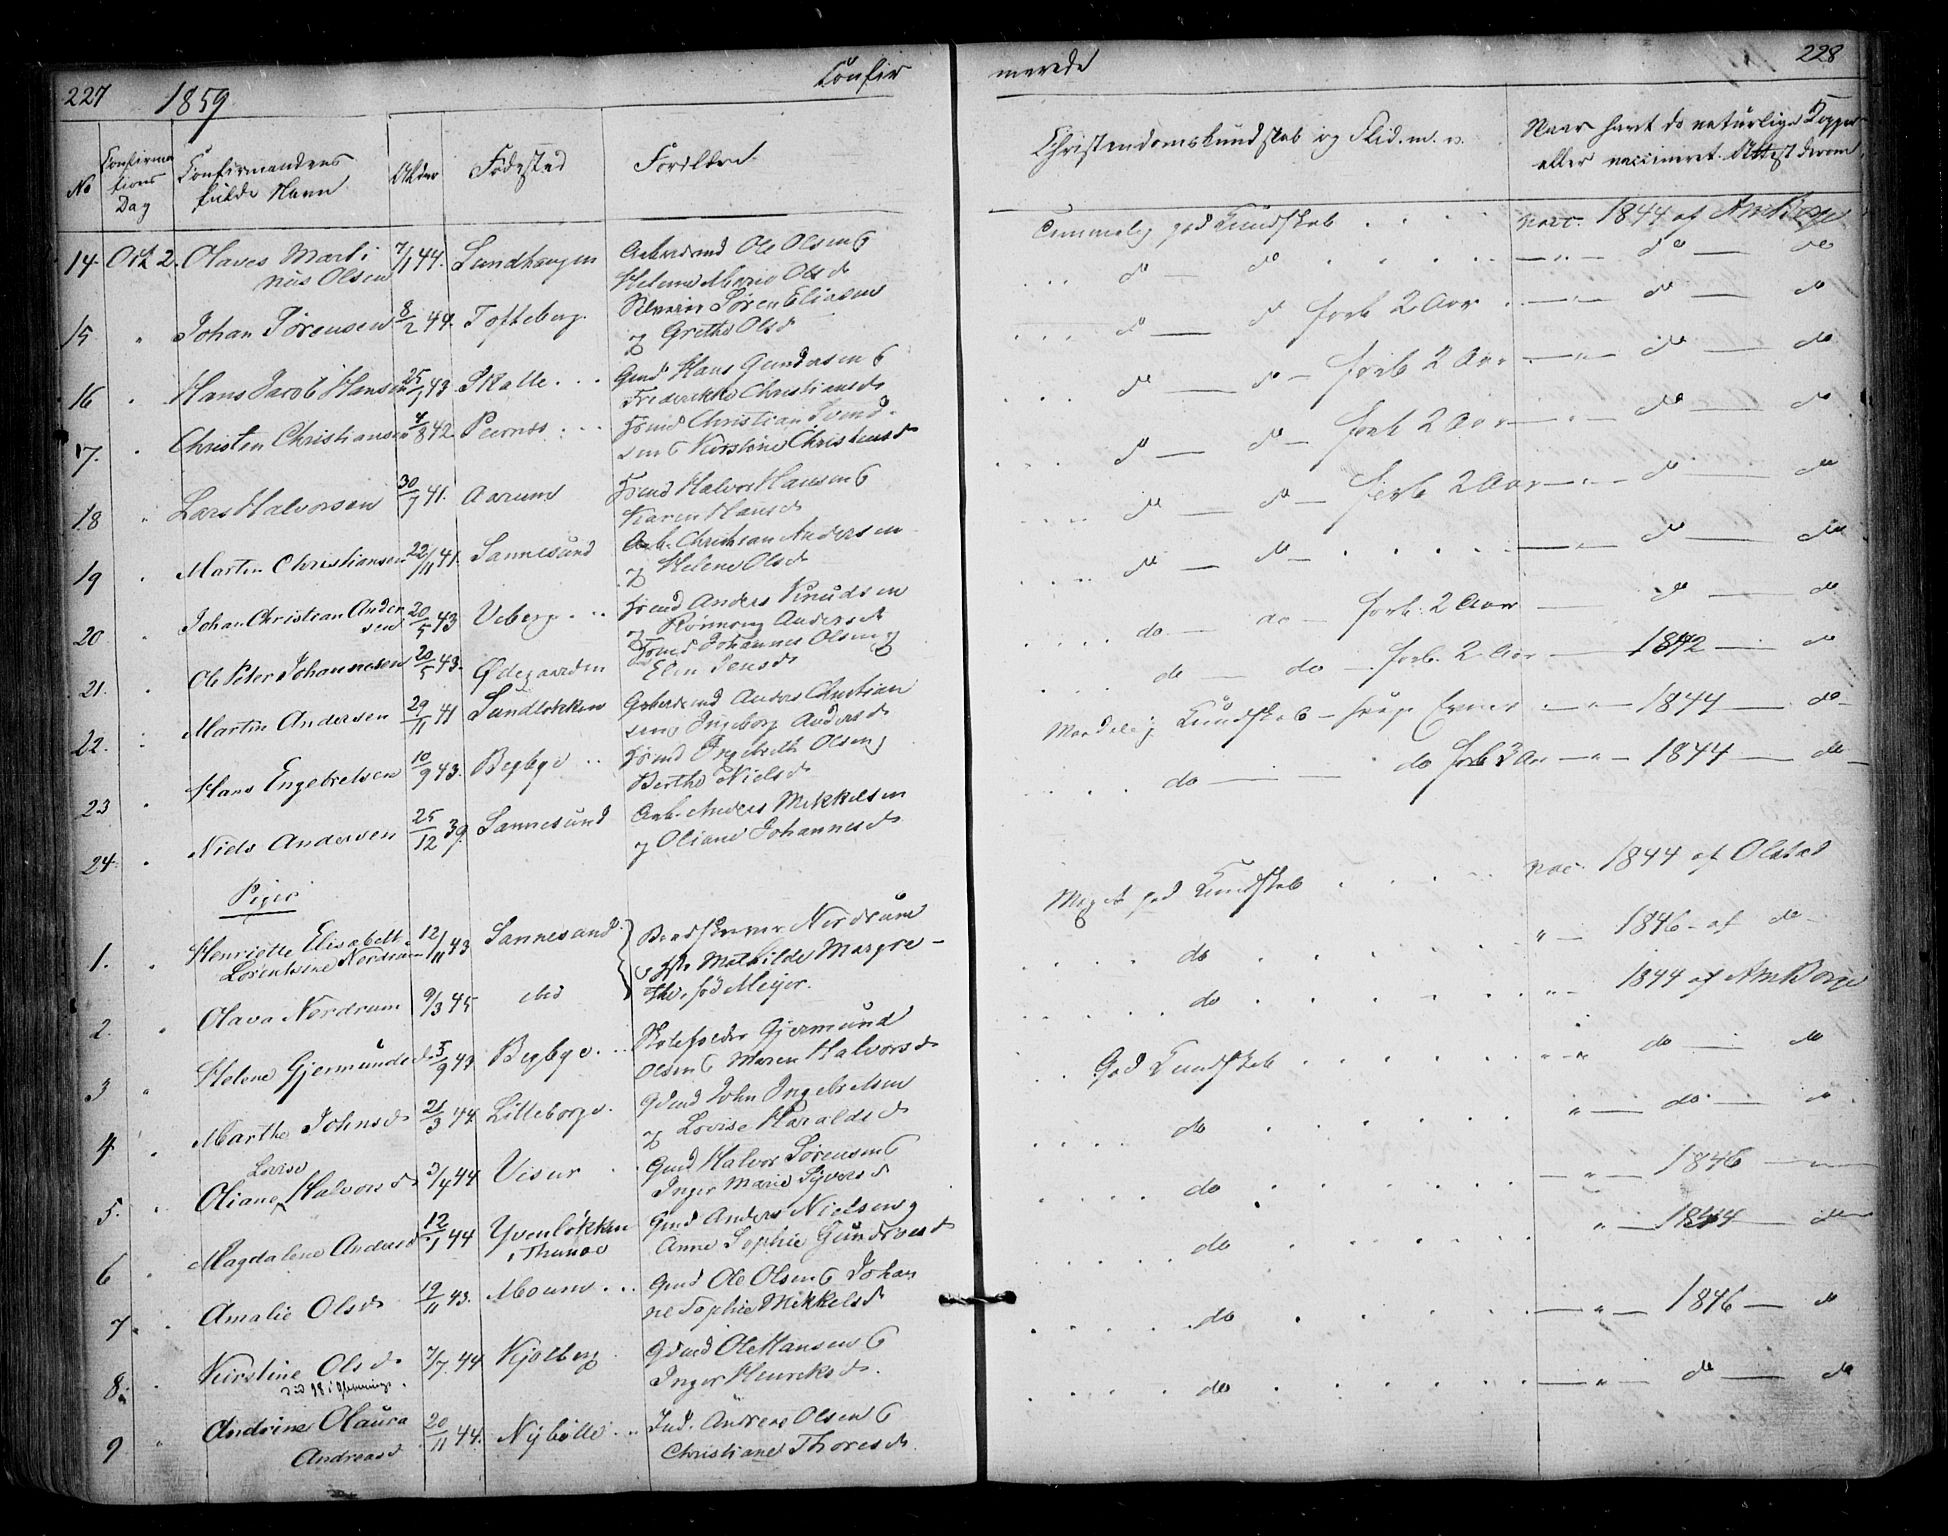 227 1859 Confir
No Confirma Confirmandens Alder Fødested Forældre
tions fulde Navn
Dag
14. Oct 2. Olaves Marti 7/11 44. Sundhaugen Arbeidsmd Ole Olsen &
nius Olsen Helene Marie Olsd
15 " Johan Sørensen 8/2 44. Tofteberg. Søren Eliasen
og Grethe Olsd
16 " Hans Jacob Hansen 25/1 43. Skalle Gmd Hans Gundersen &
Frederikke Christiansd
17. " Christen Christiansen 4/8 42. Christian Svend
sen & Kirstine Christensd
18 " Lars Halvorsen 30/7 41. Aarum Halvor Hansen &
Karen Hansd
19 " Martin Christiansen 22/11 41. Sannesund Arb. Christian Andersen
og Helene Olsd
20 " Johan Christian Ander 20/5 43 Veberg Anders Knudsen
sen og Andersd
21. " Ole Peter Johannesen 20/5 43. Ødegaarden Johannes Olsen og
Elin Jensd
22. " Martin Andersen 29/11 41 Sundløkken Arbeidsmd Anders Christian
sen & Ingeborg Andersd
23 " Hans Engebretsen 10/9 43. Begbye Ingebreth Olsen og
Berthe Nielsd
24. " Niels Andersen 25/12 39. Sannesund Arb. Anders Mikkelsen
og Oliane Johannesd
Piger
1. " Henriette Elisabeth 12/11 43 Sannesund Nordrum
Lorentzine Nordrum & Mathilde Margre-
2. " Olava Nordrum 9/3 45 ibid the, fød Meyer.
3 " Helene Gjermundsd 5/9 44 Begbye Gjermund
Olsen & Maren Halvorsd
4. " Marthe Johnsd 21/3 44. Lilleborge. Gmd John Ingebretsen
og Lovise Haraldsd
5. " Oliane Lovise Halvorsd 3/4 44 Visur Gmd Halvor Sørensen &
Inger Marie Syversd
6 " Magdalene Andersd 12/1 44 Yvenløkken Gmd Anders Nielsen og
i Thunøe Anne Sophie Gundersd
7 " Amalie Olsd 19/11 43. Moum Gmd Ole Olsen & Johan
ne Sophie Mikkelsd
8. " Kirstine Olsd 7/7 44 Kjølberg Gmd Ole Hansen &
Inger Henriksd.
9 " Andrine Olaura 20/11 44. Nybølle Ind. Andreas Olsen &
Andreasd Christiane Thoresd.
merede 228
Christendomskundskab og Flid. m. v. Naar havt de naturlige Kopper
eller vaccineret. Attest derom
Temmelig god Kundskab vacc. 1844 af Am Borge
do do " do do
do do forb 2 Aar " do do
do do forb 2 Aar " do do
do do forb 2 Aar " do do
do do forb 2 Aar " do do
do do " do do
do do forb. 2 Aar do do
do do forb. 2 Aar 1842 do
Maadelig Kundskab " 1844 do
do do forb 3 Aar " 1844 do
Meget god Kundskab vac. 1844 af Olstad
do " 1846 af do
do " 1844 af Am Borge
God Kundskab " do do
do " do do
do " 1846
do " 1844 do
do " 1846 do
do " do do